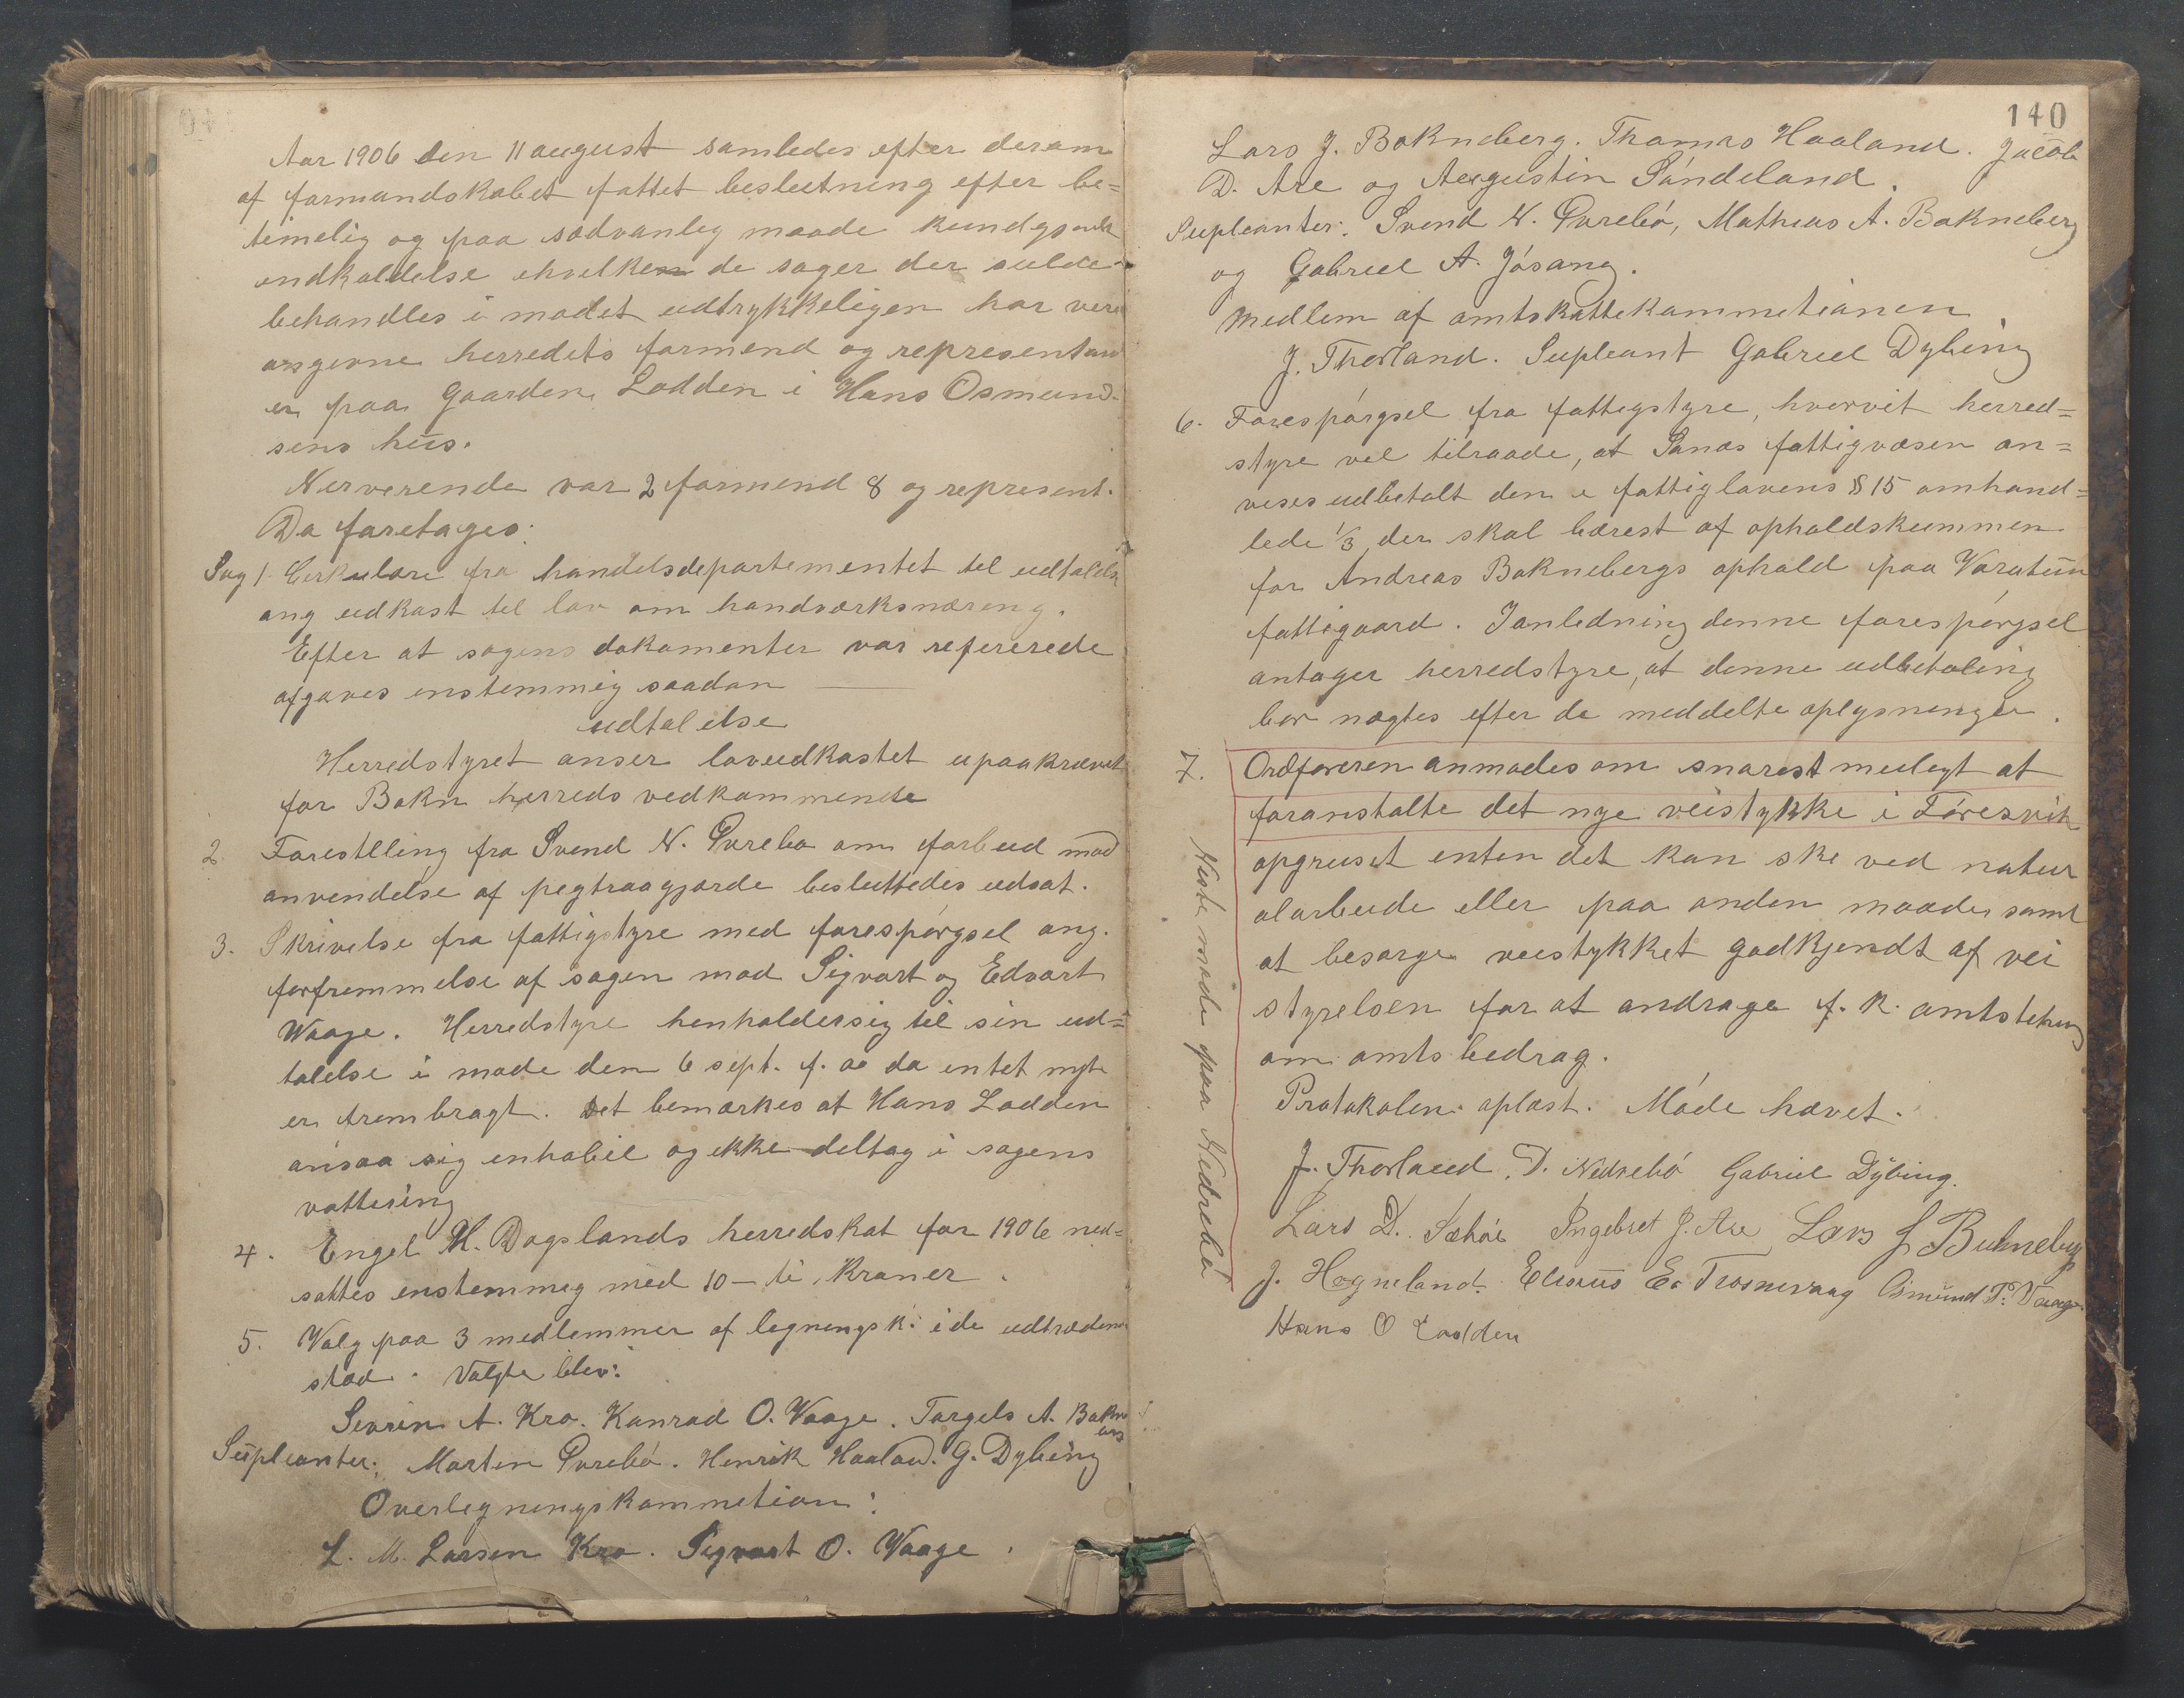 Aar 1906 den 11 august samledes efter derom
af formandskabet fattet beslutning efter be=
timelig og paa sædvanlig maade kundgjordt
indkaldelse ihvilken de sager der sulde
behandles i mødet udtrykkeligen har veri
angivne herredets formend og representan
er paa gaarden Lodden i Hans Osmund-
sens hus.
Nerverende var 2 formend 8 og represent.
Da foretages:
Sag 1. Cirkulære fra handelsdepartementet til udtalelse
ang udkast til lov om handverksnæring.
Efter at sagens dokumenter var refererede
afgaves enstemmig saadan
udtalelse
Herredstyret anser lovudkastet upaakrævet
for Bokn herreds vedkommende
2. Forestlling fra Svend N. Øvrebø om forbud mod
anvendelse af pigtraagjærde besluttedes udsat.
3. Skrivelse fra fattigstyre med forespørgsel ang.
forfremmelse af sagen mod Sigvart og Edvart
Waage. Herredstyre henholdersig til sin ud=
talelse i møde den 6 sept. f. aa da intet nyt
er frembragt. Det bemærkes at Hans Lodden
ansaa sig inhabil og ikke deltog i sagens
vottering
4. Engel M. Dogslands herredskat for 1906 ned=
sattes enstemmig med 10 – ti kroner.
5. Valg paa 3 medlemmer af legningsk. i de udtrædene
sted. Valgte blev:
Sevrin A. Kro. Konrad O. Waage. Torgels A. Bokn
Supleanter: Morten Øvrebø. Henrik Haaland. G. Dybing
Overlegningskommetion:
L. M. Larsen Kro. Sigvart O. Waage.
140
Lars J. Bokneberg. Thomas Haaland. Jacob
D. Are og Augustin Søndeland.
Supleanter: Svend N. Øvrebø, Mathias A. Bokneberg
og Gabriel A. Jøsang.
Medlem af amtskattekommetionen
J. Thorland. Supleant Gabriel Dybing
6. Forespørgsel fra fattigstyre, hvorvit herred=
styre vil tilraade, at Sanæs fattigvæsen an=
vises udbetalt den i fattiglovens § 15 omhand=
lede 1/3 der skal bærest af opholdskummen
for Andreas Boknebergs ophold paa Varatun
fattigaard. Ianledning denne forespørgsel
antager herredstyre, at denne udbetaling
bør nægtes efter de meddelte oplysninger.
7. Ordføreren anmodes om snarest muligt at
foranstalte det nye veistykke i Føresvik
opgruset enten det kan ske ved natur
alarbeide eller paa anden maade samt
at besørge veistykket godkjendt af vei
styrelsen for at andrage f. k. amtsting
om amts bedrag.
Neste møde paa Nedrebø
Protokolen oplæst. Møde hævet.
J. Thorland. D. Nedrebø Gabriel Dybing.
Lars D. Sæhøi Ingebret J. Are Lars J Bukneberg
J. Hogneland. Elias E. Trosnevaag Osmund T. Vaage
Hans O Lodden